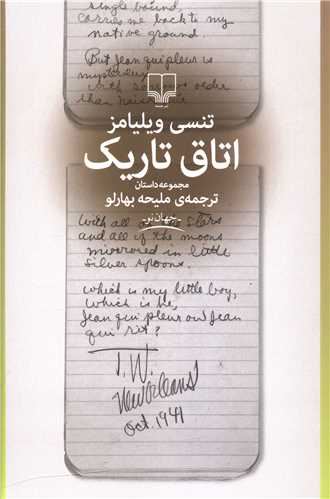 single bound,
carries me back to my
native ground.
But Jean qui pleur is
mysterious
with
than
تنسی ویلیامز
اتاق تاریک
مجموعه‌داستان
ترجمه‌ی ملیحه بهارلو
ـ جهان نو ـ
with all
and all of the moons
mirrored in little
silver spoons.
which is my little boy,
which is he,
Jean qui pleur ou Jean
qui rit?
T. W.
New Orleans
Oct. 1941